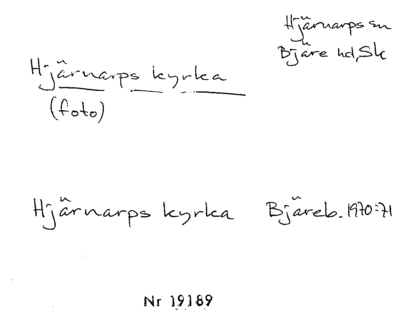 Hjärnarps sn
Bjäre hd, Sk
Hjärnarps kyrka
(foto)
Hjärnarps kyrka Bjäreb. 1970:71
Nr 19189